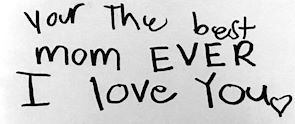 your The best
mom EVER
I love You♡